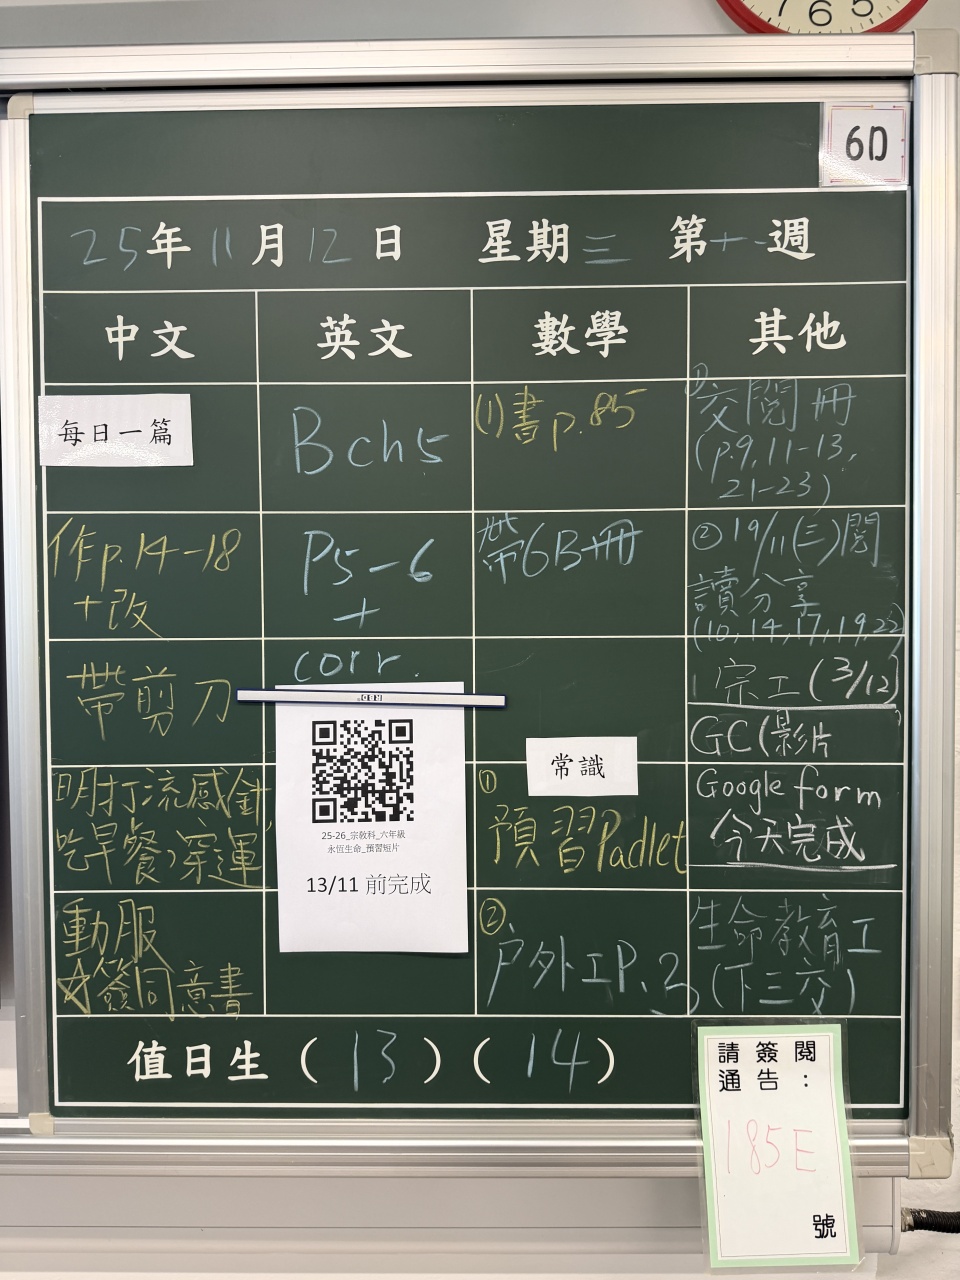 7 6 5
6D
25年11月12日 星期三 第十一週
中文 英文 數學 其他
每日一篇
作p.14-18
+改
帶剪刀
明打流感針,
吃早餐,穿運
動服
☆簽同意書
B ch5
P5-6
+
corr.
25-26_宗教科_六年級
永恆生命_預習短片
13/11 前完成
(1)書p.85
帶6B冊
常識
①
預習Padlet
②
戶外工P.3
①交閱冊
(p.9,11-13,
21-23)
②19/11(三)閱
讀分享
(10,14,17,19,22)
宗工(3/12)
GC(影片)
Google form
今天完成
生命教育工
(下三交)
值日生(13)(14)
請簽閱
通告:
185E
號